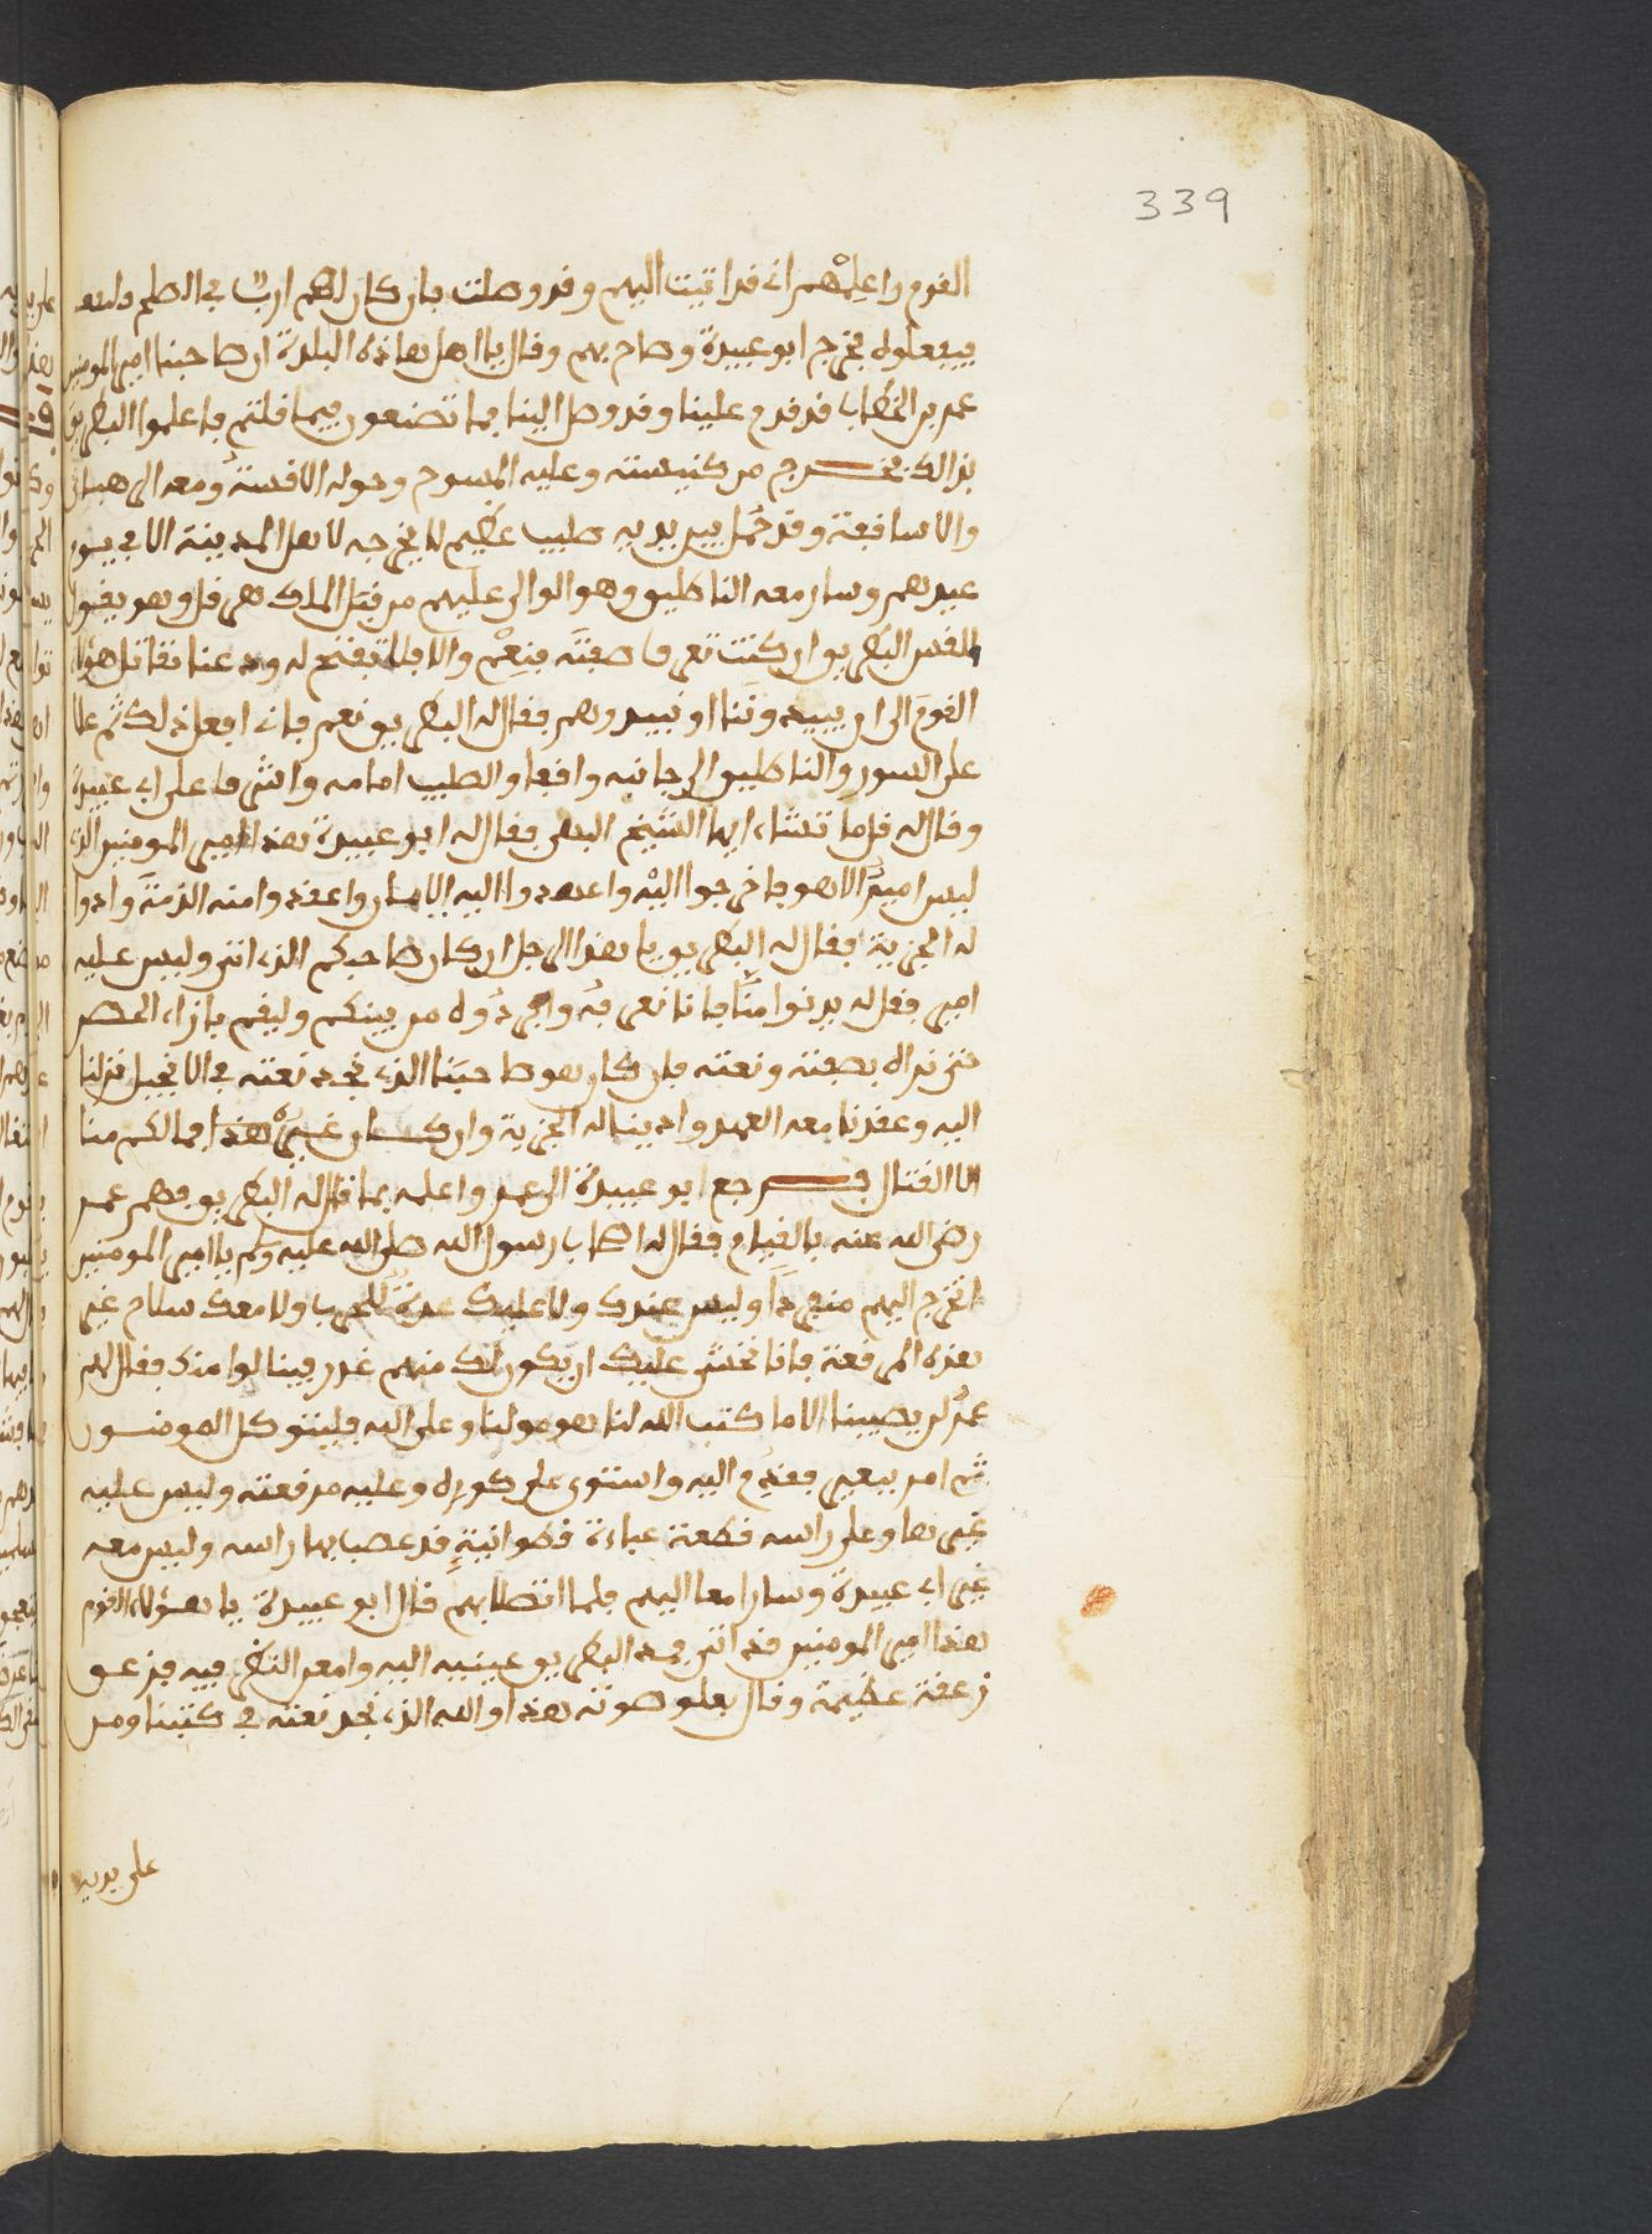 339
القوم واعلمْهم اني قد اتيت اليهم وقد وصلت فان كان لهم اربٌ في الصلح
فيبعلوه فخرج ابو عبيدة وصاح بهم وقال يا اهل هاذه البلدة ان صاحبنا امير المومنين
عمر بن الخطاب قد قدم علينا وقد وصل الينا فما تصنعون فيما قلتم فاعلموا البطريق
بذالك فخرج من كنيسته وعليه المسوح وحوله الاقسةُ ومعه الرهبان
والاساقفة وقد حُمل بين يديه صليب عظيم لا يخرجه لاهل المدينة الا في يوم
عيدهم وسار معه الناطليق وهو الوالي عليهم من قبَل الملك هرقل وهو يقول
للقس البطريق ان كنت تعرف صفتَه فنعِمْ والا فلا تفتح له ودعنا نقاتل هؤلاء
القومَ الى ان يبيدوننا او نبيدوهم فقال له البطريق نعم فاني افعل ذلك ثم علا
على السور والناطليق الى جانبه واقفا والصليب امامه واشرف على ابي عبيدة
وقال له قل ما تشاء ايها الشيخ البهي فقال له ابو عبيدة هذا امير المومنين الذي
ليس اميرٌ الا هو فاخرجوا اليْه واعهدوا اليه الايمان واعقدوا منه الذمةَ وادوا
له الجزية فقال له البطريق يا هذا الرجل ان كان صاحبكم الذي اتى وليس عليه
امير فقل له يدنوا منّا فانا نعرفه وافردُوه من بينكم وليقم بازاء الحصن
حتى نراه بصفته ونعته فان كان هو صاحبَنا الذي نجد نعته في الانجيل نزلنا
اليه وعقدنا معه العهد وادينا له الجزية وان كان غيرَ هذا فما لكم منا
الا القتال فرجع ابو عبيدة الى عمر واعلمه بما قال له البطريق فهم عمر
رضي الله عنه بالقيام فقال له اصحاب رسول الله صلى الله عليه وسلم يا امير المومنين
اتخرج اليهم منفردًا وليس عندك ولا عليك عدةٌ للحرب ولا معك سلاح غير
هذه المرقعة فانا نخشى عليك ان يكون لك منهم غدر فينالوا منك فقال لهم
عمرُ لن يصيبنا الا ما كتب الله لنا هو مولنا وعلى الله فليتوكل المومنون
ثم امر ببعير فقدِم اليه واستوى على كوره وعليه مرقعته وليس عليه
غيرها وعلى راسه قطعة عباءة قطوانيةٍ قد عصب بها راسه وليس معه
غير ابي عبيدة وسارا معا اليهم فلما اتصلا بهم قال ابو عبيدة يا هؤلاء القوم
هذا امير المومنين قد اتى فمد البطريق عينيه اليه وامعن النظر فيه فزعق
زعقة عظيمة وقال بعلو صوته هذا والله الذي نجد نعته في كتبنا ومن
على يديه